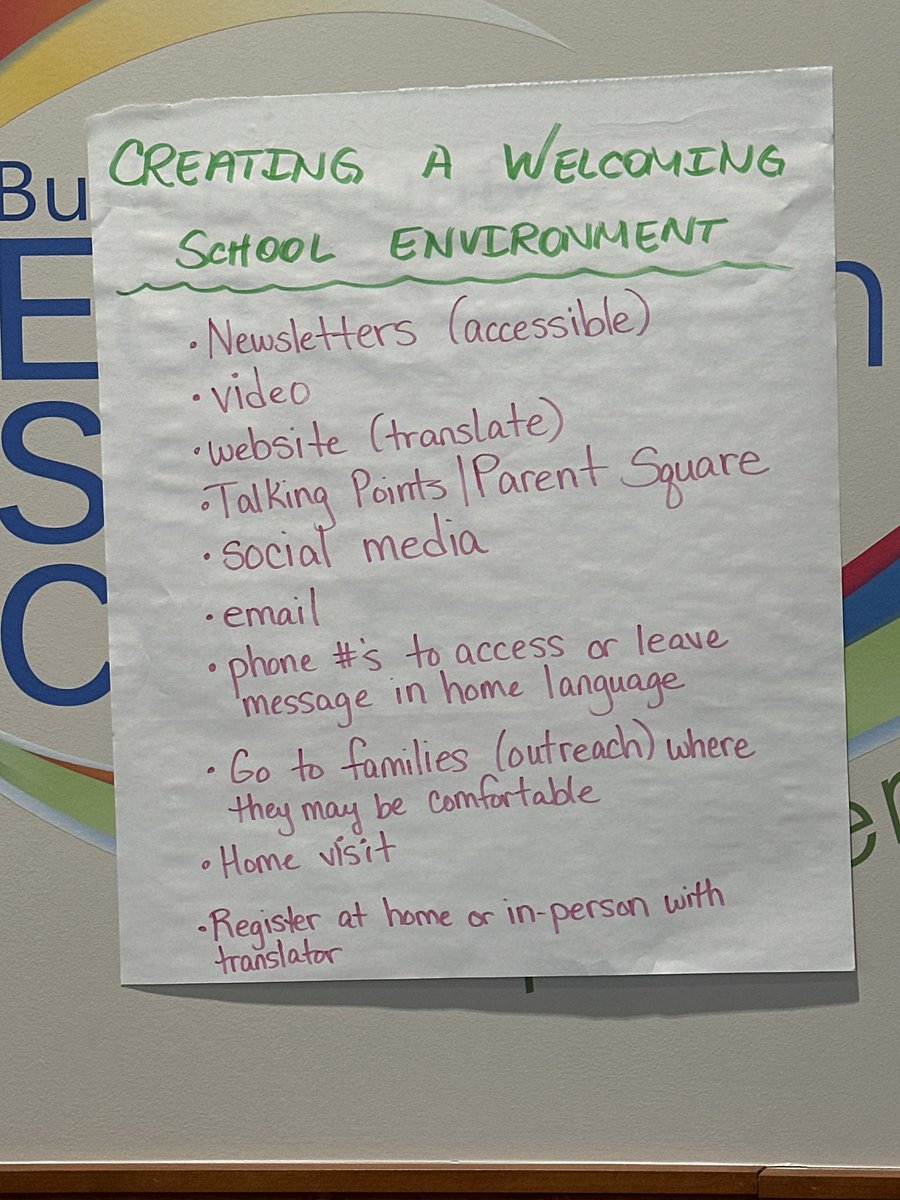 CREATING A WELCOMING
SCHOOL ENVIRONMENT
• Newsletters (accessible)
• video
• website (translate)
• Talking Points | Parent Square
• social media
• email
• phone #'s to access or leave
message in home language
• Go to families (outreach) where
they may be comfortable
• Home visit
• Register at home or in-person with
translator
Bu
E
S
C
n
er